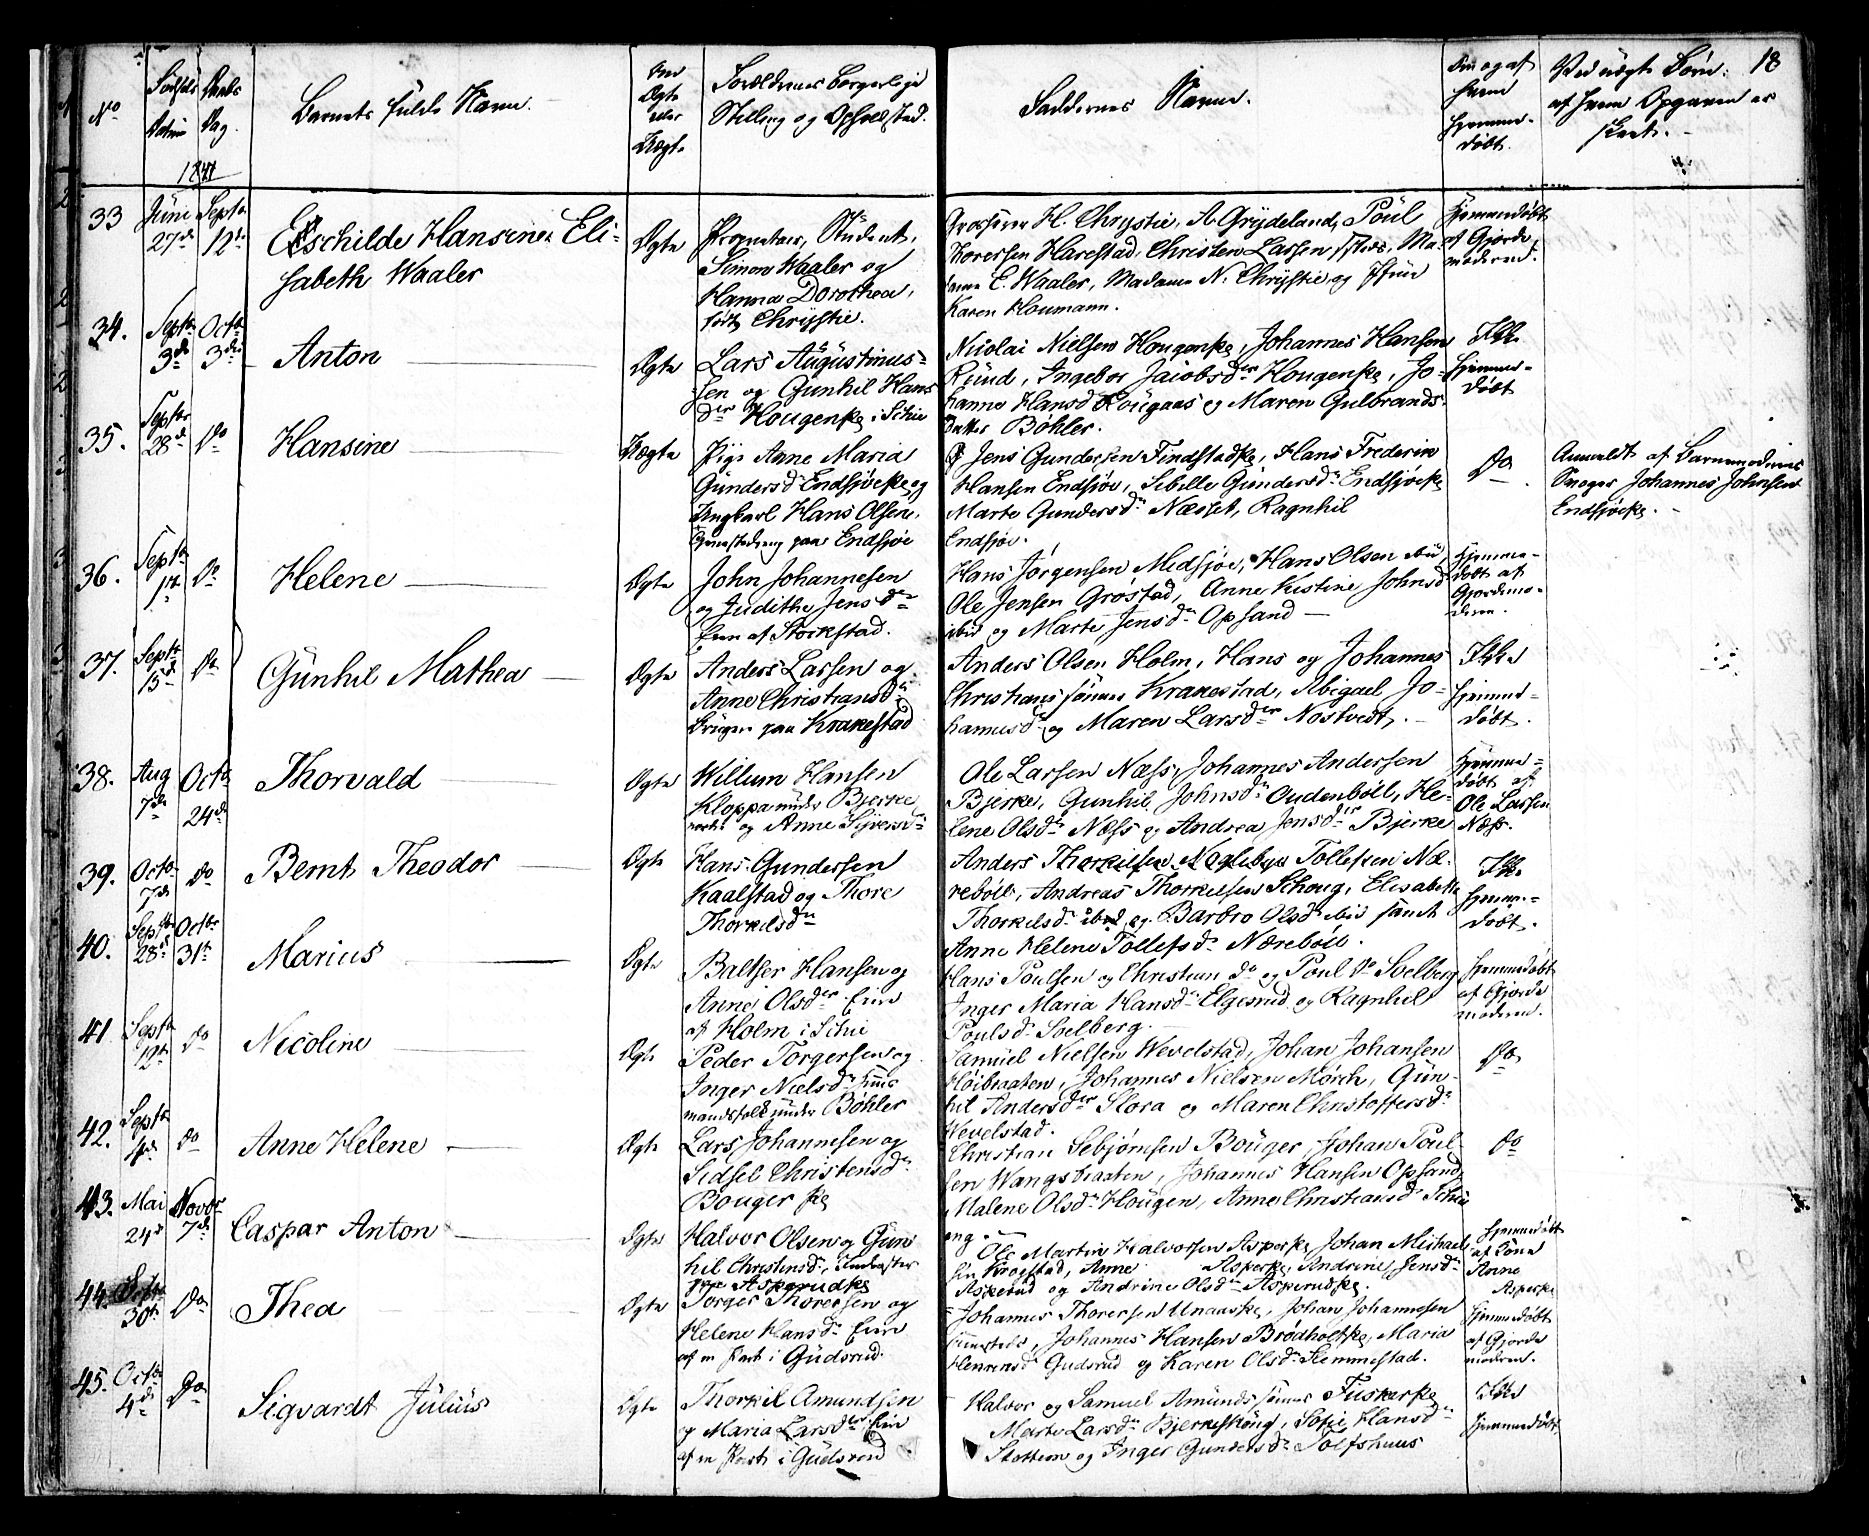 18
No
Fødsels Datum
Daabs Dag
Barnets fulde Navn.
Om Ægte eller Uægte
Forældrenes borgerlige Stilling og Opholdsted.
Faddernes Navne.
Om og af hvem hjemmedøbt.
Ved uægte Børn: af hvem Opgaven er skeet.
33
Juni 27de
Septr 12te
Eschilde Hansine Elisabeth Waaler
Ægte
Student,
Simon Waaler og
Hanna Dorothea,
født Christie.
H. Chrystie, A. Grydeland, Poul
Thoresen Harestad, Christen Larsen
E. Waaler, Madame N. Chrystie og Jfru
Karen Houmann.
Hjemmedøbt
af Gjordemoderen.
34.
Septr 3de
Octbr 3die
Anton
Ægte
Lars Augustinus-
sen og Gunhil Hans
Dr Hougenske i Schie
Nicolai Nielsen Hougenske, Johannes Hansen
Rund, Ingebor Jacobsdr Hougenske, Jo-
hanne Hansd Kougaas og Maren Gulbrands
datter Bøhler.
Ikke
hjemme-
døbt
35.
Septbr 28de
Do
Hansine
Uægte
Pige Anne Maria
Gundersd Endsjøeske og
Ungkarl Hans Olsen,
paa Endsjøe
Jens Gundersen Findstadske, Hans Frederik
Hansen Endsjøe, Sibille Gundersdr Endsjøeske
Marte Gundersdr Næsset, Ragnhil
Endsjøe.
Do
Anmeldt af Barnemoderens
Svoger Johannes Johnsen
Endsjøeske.
36.
Septr 1te
Do
Helene
Ægte
John Johannesen
og Judithe Jensdr
Eier af Storkstad.
Hans Jørgensen Midsjøe, Hans Olsen ibid
Ole Jensen Grøstad, Anne Kistine Johnsd
ibid og Marte Jensdr Opsand
Hjemme-
døbt af
Gjordemo-
deren.
37.
Septr 15de
Do
Gunhil Mathea
Ægte
Anders Larsen og
Anne Christiansdr
Bruger paa Krakestad
Anders Olsen Holm, Hans og Johannes
Christians sønner Krakestad, Abigael Jo-
hannesdr og Maren Larsdr Nostvedt.
Ikke
hjemme-
døbt.
38.
Aug 7de
Octr 24de
Thorvald
Ægte
Willum Hansen
Kloppa under Bjerke
og Anne Sijversdr
Ole Larsen Næss, Johannes Andersen
Bjerke, Gunhil Johnsdr Oudenbøil, He-
lene Olsdr Næss og Andrea Jensdr Bjerke
hjemme-
døbt af
Ole Larsen
Næss.
39.
Octbr 7de
Do
Bernt Theodor
Ægte
Hans Gundersen
Kaalstad og Thore
Thorkilsdr
Anders Thorkilsen Tollefsen Næ-
rebøil, Andreas Thorkilsen Schoug, Elisabeth
Thorkilsdr ibid og Barbro Olsdr ibid samt
Anne Helene Tollefsdr Nærebøil.
Ikke
hjemme-
døbt.
40.
Septr 28de
Octbr 31te
Marius
Ægte
Baltser Hansen og
Anne Olsdr Eiere
af Holm i Schie
Hans Poulsen og Christian do og Poul do Solberg
Inger Maria Hansdr Elgesrud og Ragnhil
Poulsdr Solberg.
hjemmedøbt
af Gjorde
moderen.
41
Septr 12te
Do
Nicoline
Ægte
Peder Torgersen og
Inger Nielsdr Huus
mandsfolk under Bøhler
Samuel Nielsen Wevelstad, Johan Johansen
Høibraaten, Johannes Nielsen Mørch, Gun-
hil Andersdr Slora og Maren Christoffersdr
Wevelstad.
Do
42.
Septr 4de
Do
Anne Helene
Ægte
Lars Johannesen og
Sidsel Christensdr
Bouger ske
Christian Sebjørnsen Bouger, Johan Poul-
sen Wangsbraaten, Johannes Hansen Opsand,
Malene Olsdr Hougen, Anne Christiansdr Schie
eng.
Do
43.
Mai 24de
Novbr 7de
Caspar Anton
Ægte
Halvor Olsen og Gun
hil Christensdr,
Asperudske
Ole Martin Halvorsen Asperske, Johan Michael-
sen Krogstad, Anne Asperske, Andrine Jensdr
Asperud og Andrine Olsdr Asperudske.
hjemmedøbt
af
Anne
Asperske
44.
30te
Do
Thea
Ægte
Torger Thoresen og
Helene Hansdr Eiere
af en Part i Gudsrud.
Johannes Thorersen Unaaske, Johan Johannesen
Johannes Hansen Brødholtske, Maria
Henriksdr Gudsrud og Karen Olsdr Slemmestad.
hjemmedøbt
af Gjorde
moderen.
45.
Octbr 4de
Do
Sigvardt Julius
Ægte
Thorkil Amundsen
og Maria Larsdr Eiere
af en Part i Gudsrud
Halvor og Samuel Amunds sønner Fuskerske,
Marte Larsdr Bjerkeskoug, Sofie Hansdr
Slottum og Inger Gundersdr Tolfshuus
Ikke
hjemmedøbt